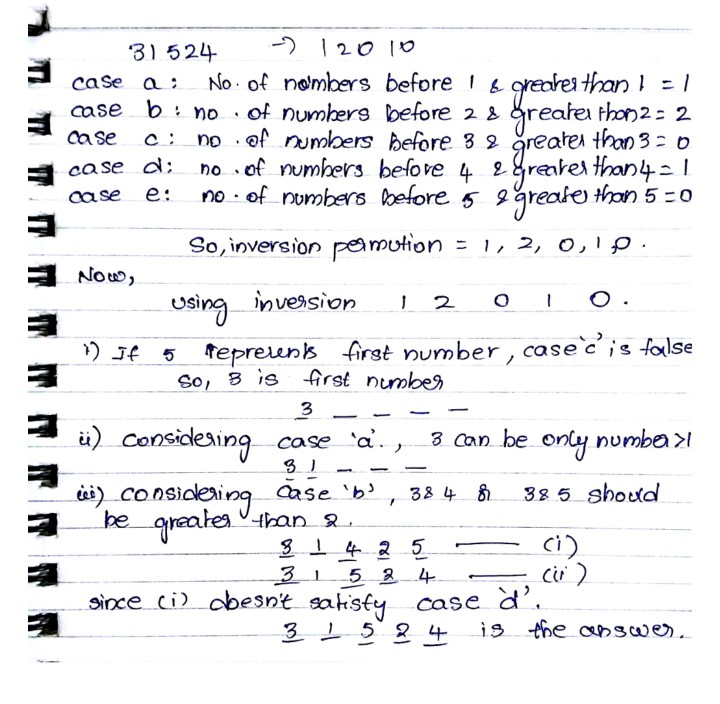 31524 → 12010
case a: No. of numbers before 1 & greater than 1 = 1
case b: no. of numbers before 2 & greater than 2 = 2
case c: no. of numbers before 3 & greater than 3 = 0
case d: no. of numbers before 4 & greater than 4 = 1
case e: no. of numbers before 5 & greater than 5 = 0
So, inversion permution = 1, 2, 0, 1, 0.
Now,
using inversion 1 2 0 1 0.
i) If 5 reprerents first number, case 'c' is false
so, 3 is first number
3 _ _ _ _
ii) considering case 'a'., 3 can be only number >1
3 1 _ _ _
iii) considering case 'b', 3 & 4 & 3 & 5 should
be greater than 2.
3 1 4 2 5 — (i)
3 1 5 2 4 — (ii)
since (i) doesn't satisfy case 'd'.
3 1 5 2 4 is the answer.